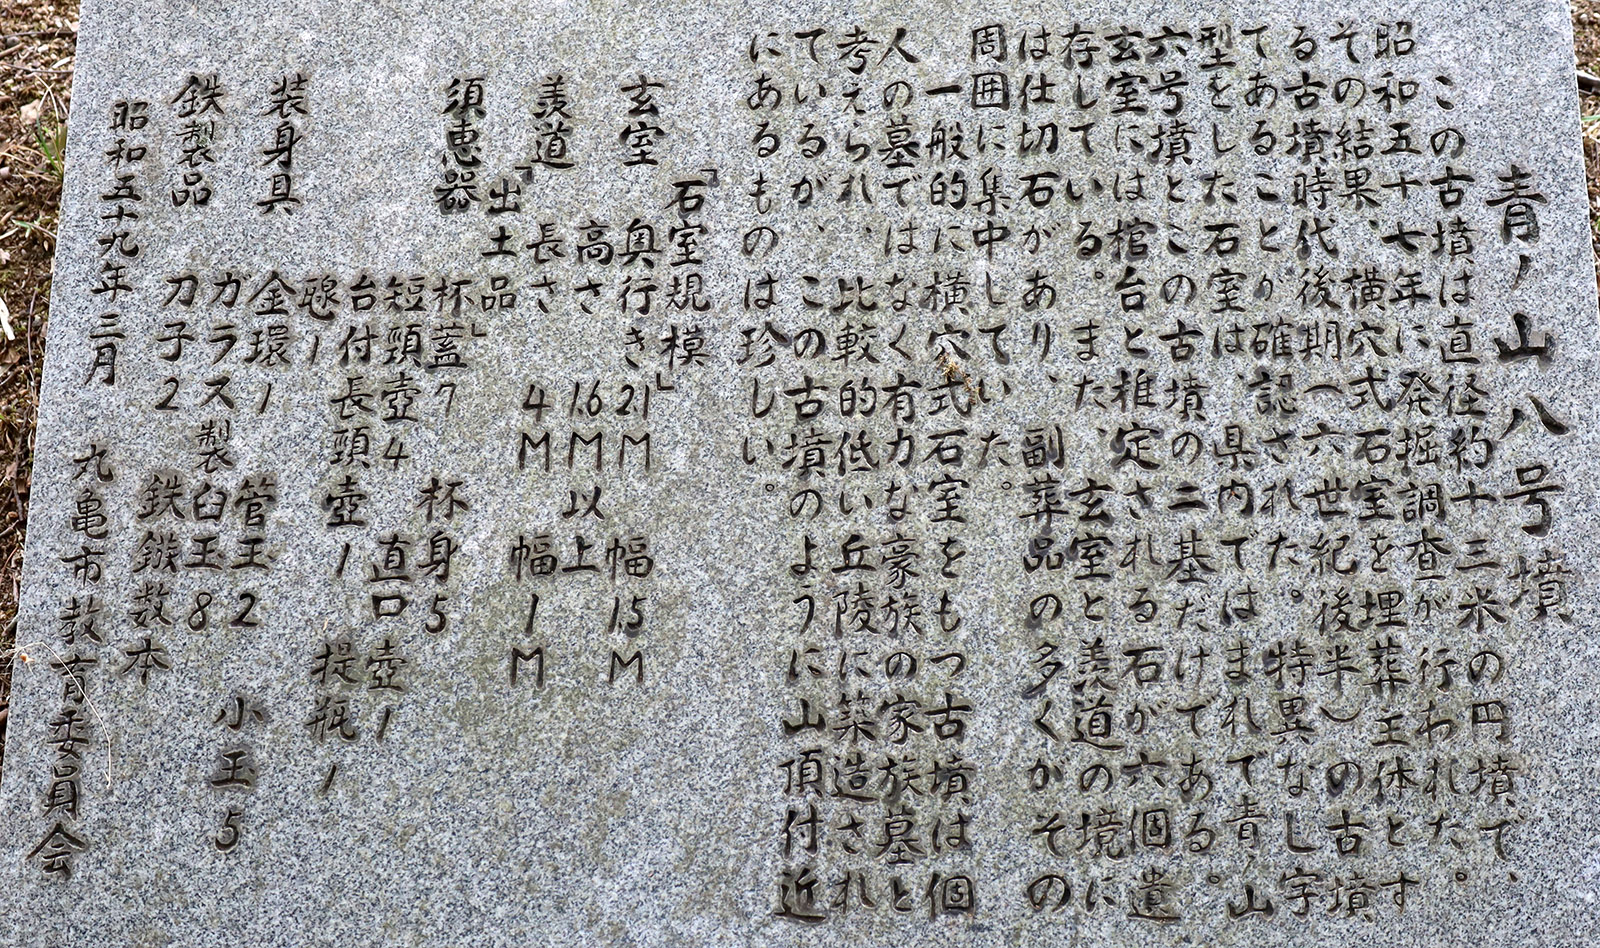 青ノ山八号墳
この古墳は直径約十三米の円墳で、
昭和五十七年に発掘調査が行われた。
その結果、横穴式石室を埋葬主体とす
る古墳時代後期(六世紀後半)の古墳
であることが確認された。特異なし字
型をした石室は、県内ではまれで青ノ山
六号墳とこの古墳の二基だけである。
玄室には棺台と推定される石が六個遺
存している。また、玄室と羨道の境に
は仕切石があり、副葬品の多くがその
周囲に集中していた。
一般的に横穴式石室をもつ古墳は個
人の墓ではなく有力な豪族の家族墓と
考えられ、比較的低い丘陵に築造され
ているが、この古墳のように山頂付近
にあるものは珍しい。
「石室規模」
玄室 奥行き 2.1M 幅 1.5M
高さ 1.6M以上
羨道 長さ 4M 幅 1M
「出土品」
須恵器 杯蓋7 杯身5
短頸壺4 直口壺1
台付長頸壺1 提瓶1
𤭯1
装身具 金環1 管玉2
ガラス製臼玉8 小玉5
鉄製品 刀子2 鉄鏃数本
昭和五十九年三月 丸亀市教育委員会